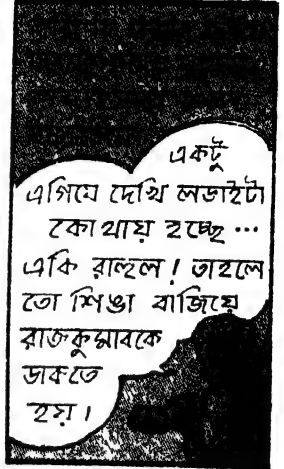 একটু
এগিয়ে দেখি লড়াইটা
কোথায় হচ্ছে ...
একি রাহুল! তাহলে
তো শিঙা বাজিয়ে
রাজকুমারকে
ডাকতে
হয়।